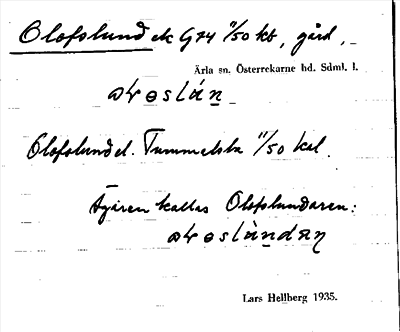 Olofslund ek G74 11/50 kb, gård,
Ärla sn. Österrekarne hd. Sdml. l.
Olofslund el. Tummelsta 11/50 kal
Ägaren kallas Olofslundaren:
Lars Hellberg 1935.